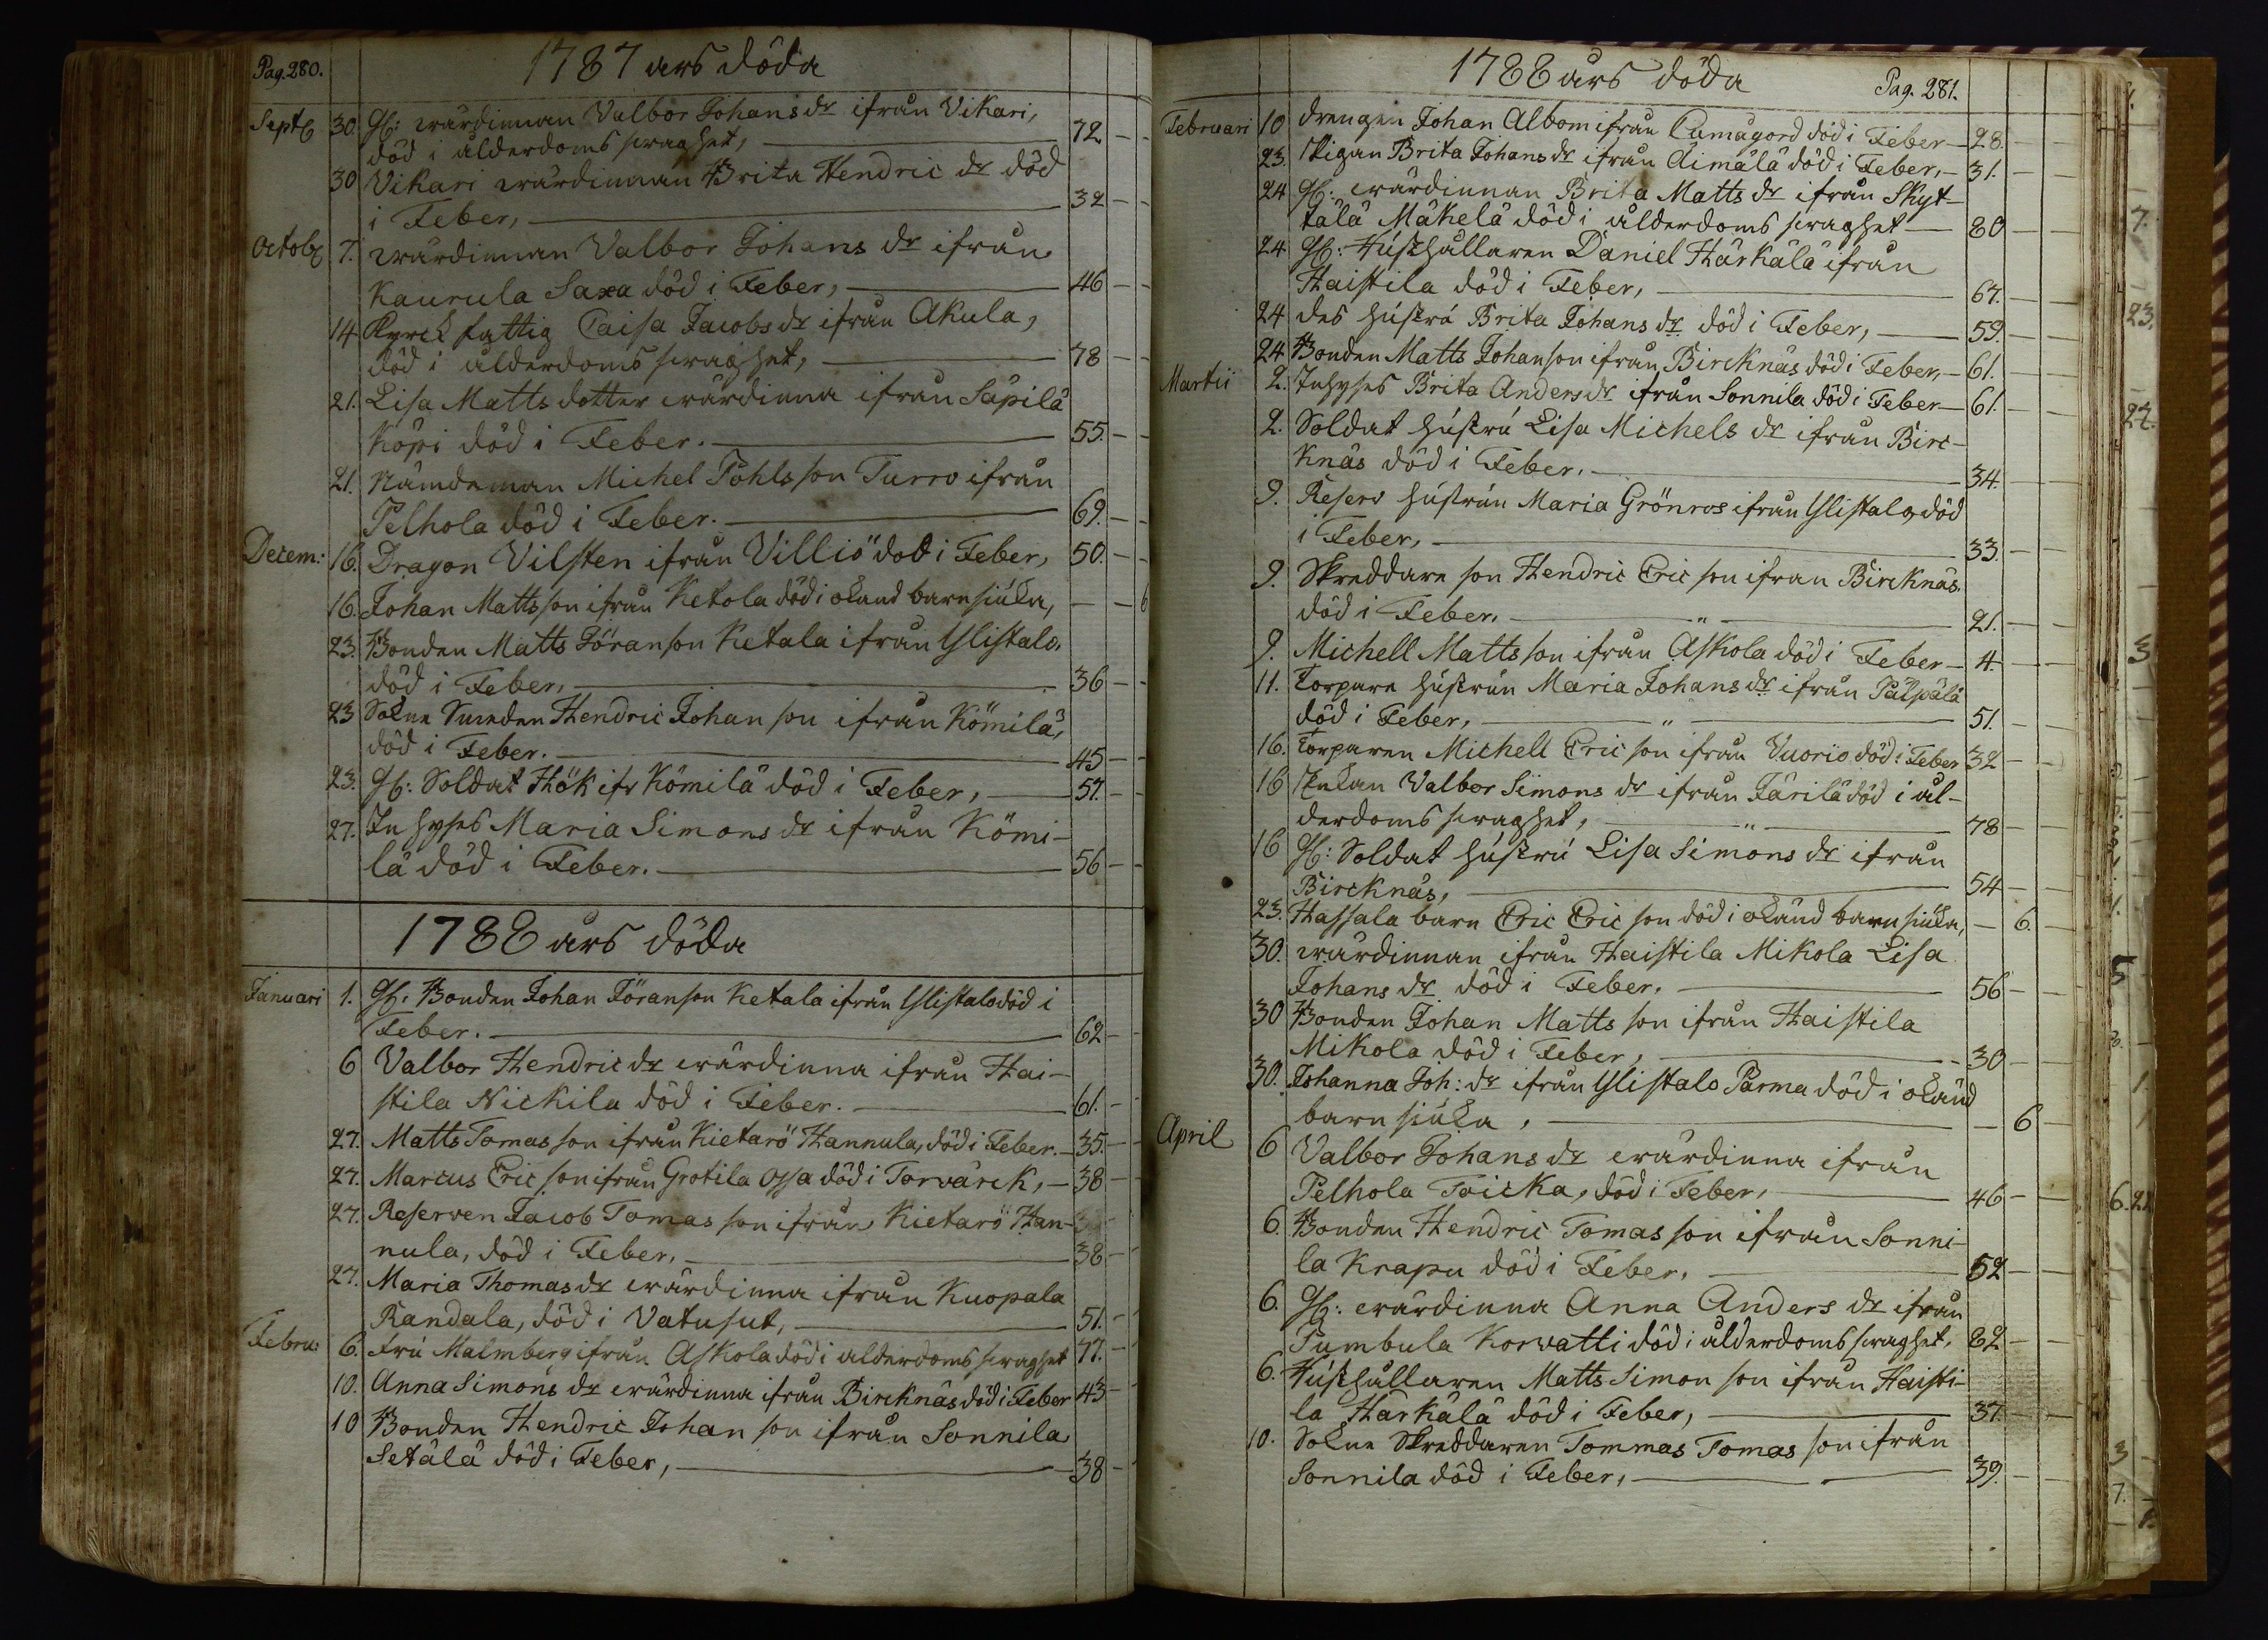 Pag. 280.
1787 års döda
Septb 30 Gl: wärdinnan Valbor Johans dr ifrån Vikari,
död i ålderdoms swaghet, 72
30 Vikari wärdinnan Brita Hendric dr död
i Feber, 32
Octob 7. wärdinnan Valbor Johans dr ifrån
Kaurula Saxa död i Feber, 46
14 Kyrck fattig Caisa Jacobs dr ifrån Akula,
död i ålderdoms swaghet, 78
21. Lisa Matts dotter wärdinna ifrån Säpilä
Köpi död i Feber. 55.
21. Nämdeman Michel Pohls son Turro ifrån
Pelhola död i Feber. 69.
Decem: 16. Dragon Vilsten ifrån Villiö död i Feber, 50.
16. Johan Matts son ifrån Ketola död i okänd barnsiuka, 6
23. Bonden Matts Jöranson Ketala ifrån Ylistalo,
död i Feber, 36
23 Sokne Smeden Hendric Johan son ifrån Kömilä,
död i Feber. 45
23. Gl: Soldat Hök ifr Kömilä död i Feber, 57.
27. Inhyses Maria Simons dr ifrån Kömi-
lä död i Feber. 56
1788 års döda
Januari 1. Gl: Bonden Johan Jöranson Ketala ifrån Ylistalo död i
Feber. 62
6 Valbor Hendric dr wärdinna ifrån Hai-
stila Nickila död i Feber. 61.
27. Matts Tomas son ifrån Kietarö Hannula, död i Feber. 35.
27. Marcus Eric son ifrån Grotila Ossa död i Torvärck, 38
27. Reserven Jacob Tomas son ifrån Kietarö Han-
nula, död i Feber, 38
27. Maria Thomas dr wärdinna ifrån Kuopala
Randala, död i Vatusut, 51.
Febru: 6. Fru Malmberg ifrån Askola död i ålderdoms swaghet 77.
10. Anna Simons dr wärdinna ifrån Bircknäs död i Feber 43
10 Bonden Hendric Johan son ifrån Sonnila
Setälä död i Feber, 38
1788 års döda
Pag. 281.
Februari 10 drengen Johan Albom ifrån Cumägord död i Feber 28.
23. Pigan Brita Johans dr ifrån Äimälä död i Feber, 31.
24 Gl: wärdinnan Brita Matts dr ifrån Skyt-
tälä Mäkelä död i ålderdoms swaghet 80
24. Gl: Hushållaren Daniel Härkälä ifrån
Haistila död i Feber, 67.
24 des hustru Brita Johans dr död i Feber, 59.
24 Bonden Matts Johanson ifrån Bircknäs död i Feber, 61.
Martii 2. Inhyses Brita Anders dr ifrån Sonnila död i Feber 61.
2. Soldat hustru Lisa Michels dr ifrån Birc-
knäs död i Feber. 34.
9. Reserv hustrun Maria Grönros ifrån Ylistalo, död
i Feber, 33.
9. Skreddare son Hendric Eric son ifrån Bircknäs.
död i Feber. 21.
9. Michell Matts son ifrån Askola död i Feber 4.
11. Torpare hustrun Maria Johans dr ifrån Pälpälä
död i Feber, 51.
16. Torparen Michell Eric son ifrån Vuorio död i Feber 32
16 Enkan Valbor Simons dr ifrån Järilä död i ål-
derdoms swaghet, 78
16 Gl: Soldat hustru Lisa Simons dr ifrån
Bircknäs, 54
23. Hassala barn Eric Eric son död i okänd barnsiuka, 6.
30. wärdinnan ifrån Haistila Mikola Lisa
Johans dr död i Feber. 56
30 Bonden Johan Matts son ifrån Haistila
Mikola död i Feber, 30
30. Johanna Joh: dr ifrån Ylistalo Parma död i okänd
barnsiuka, 6
April 6 Valbor Johans dr wärdinna ifrån
Pelhola Toicka, död i Feber, 46
6. Bonden Hendric Tomas son ifrån Sonni-
la Krapu död i Feber. 52
6. Gl: wärdinna Anna Anders dr ifrån
Pumbula Korvatti död i ålderdoms swaghet. 82
6. Hushållaren Matts Simon son ifrån Haisti-
la Härkälä död i Feber, 37.
10. Sokne Skreddaren Tommas Tomas son ifrån
Sonnila död i Feber, 39.